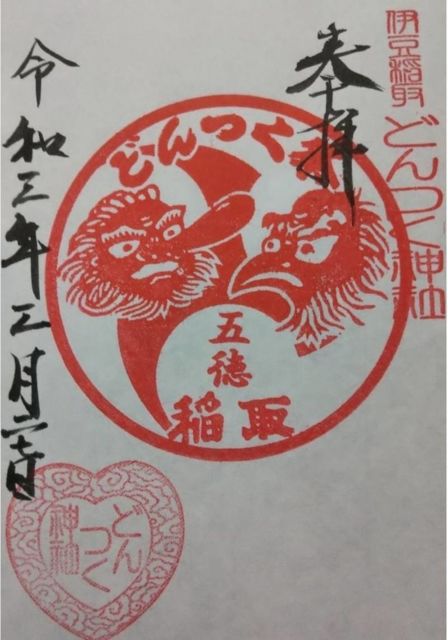 伊豆稲取
どんつく神社
奉拝
どんつく祭
五徳
稲取
令和三年三月
どん
つく
神社